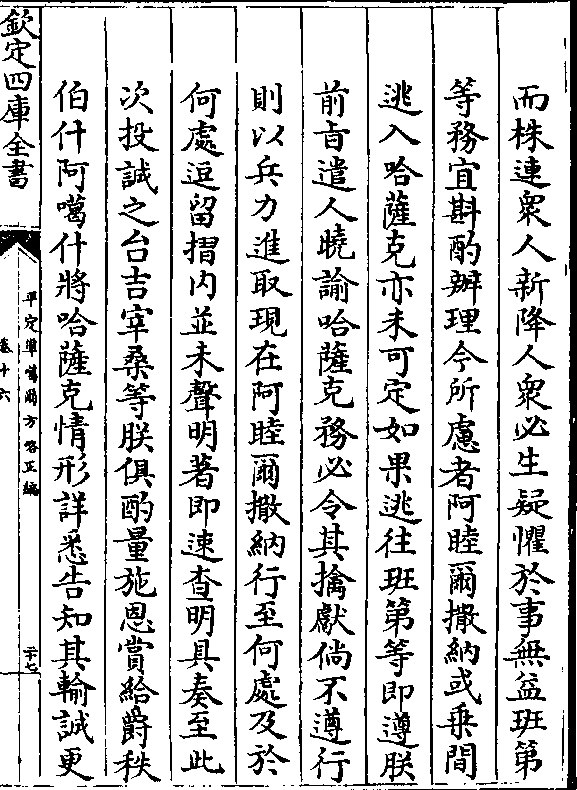 而株連衆人新降人衆必生疑懼於事無益班第
等務宜斟酌辦理今所慮者阿睦爾撒納或乗間
逃入哈薩克亦未可定如果逃往班第等即遵朕
前㫖遣人曉諭哈薩克務必令其擒獻倘不遵行
則以兵力進取現在阿睦爾撒納行至何處及於
何處逗留摺内並未聲明著即速查明具奏至此
次投誠之台吉宰桑等朕俱酌量施恩賞給爵秩
伯什阿噶什將哈薩克情形詳悉告知其輸誠更
欽定四庫全書
平定凖噶爾方略正編
卷十六
二十七